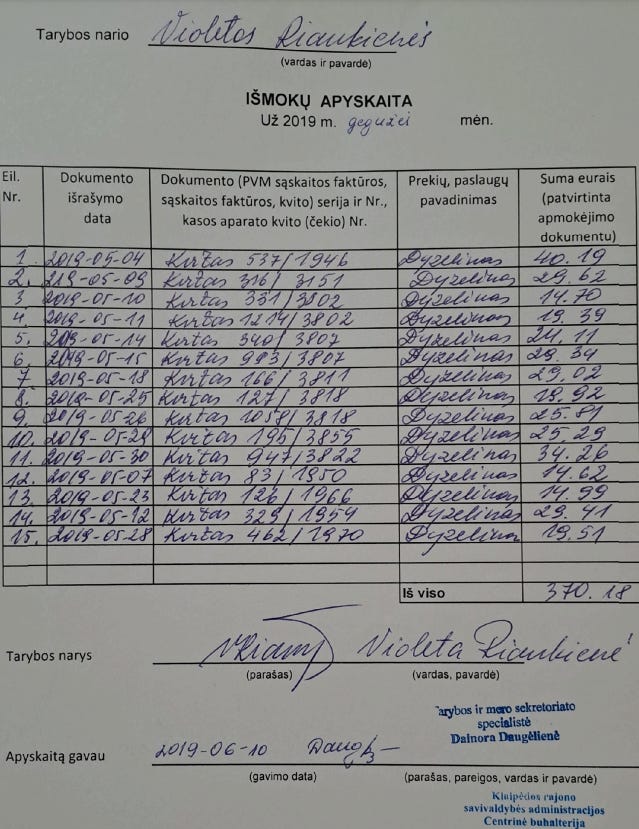 Tarybos nario Violetos Riaukienės
(vardas ir pavardė)
IŠMOKŲ APYSKAITA
Už 2019 m. gegužės mėn.
Eil. Nr. Dokumento išrašymo data Dokumento (PVM sąskaitos faktūros, sąskaitos faktūros, kvito) serija ir Nr., kasos aparato kvito (čekio) Nr. Prekių, paslaugų pavadinimas Suma eurais (patvirtinta apmokėjimo dokumentu)
1. 2019-05-04 Kvitas 537/1946 Dyzelinas 40.19
2. 219-05-09 Kvitas 316/3151 Dyzelinas 29.62
3. 2019-05-10 Kvitas 331/3802 Dyzelinas 14.70
4. 2019-05-11 Kvitas 1214/3802 Dyzelinas 19.39
5. 2019-05-14 Kvitas 340/3807 Dyzelinas 24.11
6. 2019-05-15 Kvitas 993/3807 Dyzelinas 29.34
7. 2019-05-18 Kvitas 166/3811 Dyzelinas 29.02
8. 2019-05-25 Kvitas 127/3818 Dyzelinas 19.92
9. 2019-05-26 Kvitas 1058/3818 Dyzelinas 25.81
10. 2019-05-29 Kvitas 195/3855 Dyzelinas 25.29
11. 2019-05-30 Kvitas 947/3822 Dyzelinas 34.26
12. 2019-05-07 Kvitas 83/1950 Dyzelinas 14.62
13. 2019-05-23 Kvitas 126/1966 Dyzelinas 14.99
14. 2019-05-12 Kvitas 329/1954 Dyzelinas 29.41
15. 2019-05-28 Kvitas 462/1970 Dyzelinas 19.51
Iš viso 370.18
Tarybos narys Violeta Riaukienė
(parašas) (vardas, pavardė)
Tarybos ir mero sekretoriato
specialistė
Dainora Daugėlienė
Apyskaitą gavau 2019-06-10
(gavimo data) (parašas, pareigos, vardas ir pavardė)
Klaipėdos rajono
savivaldybės administracijos
Centrinė buhalterija